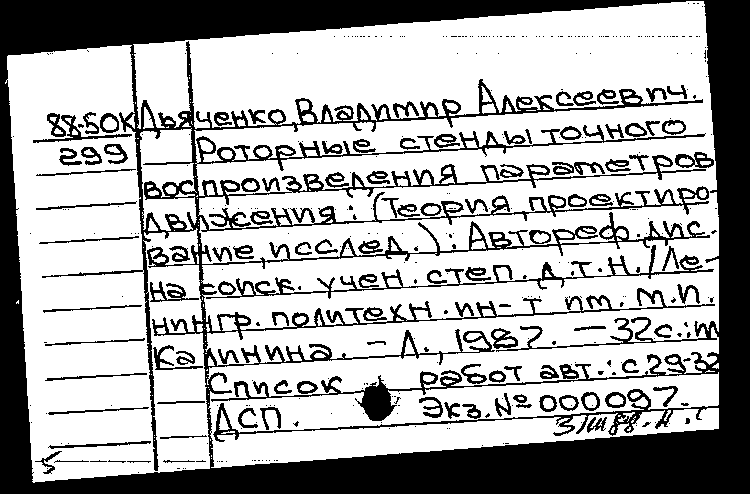 88-50К Дьяченко, Владимир Алексеевич.
299 Роторные стенды точного
воспроизведения параметров
движения: (Теория, проектиро-
вание, исслед.): Автореф. дис.
на соиск. учен. степ. д.т.н. / Ле-
нингр. политехн. ин-т им. М.И.
Калинина. - Л., 1987. - 32 с.: ил
Список работ авт.: с. 29-32
ДСП. Экз. № 000097.
5